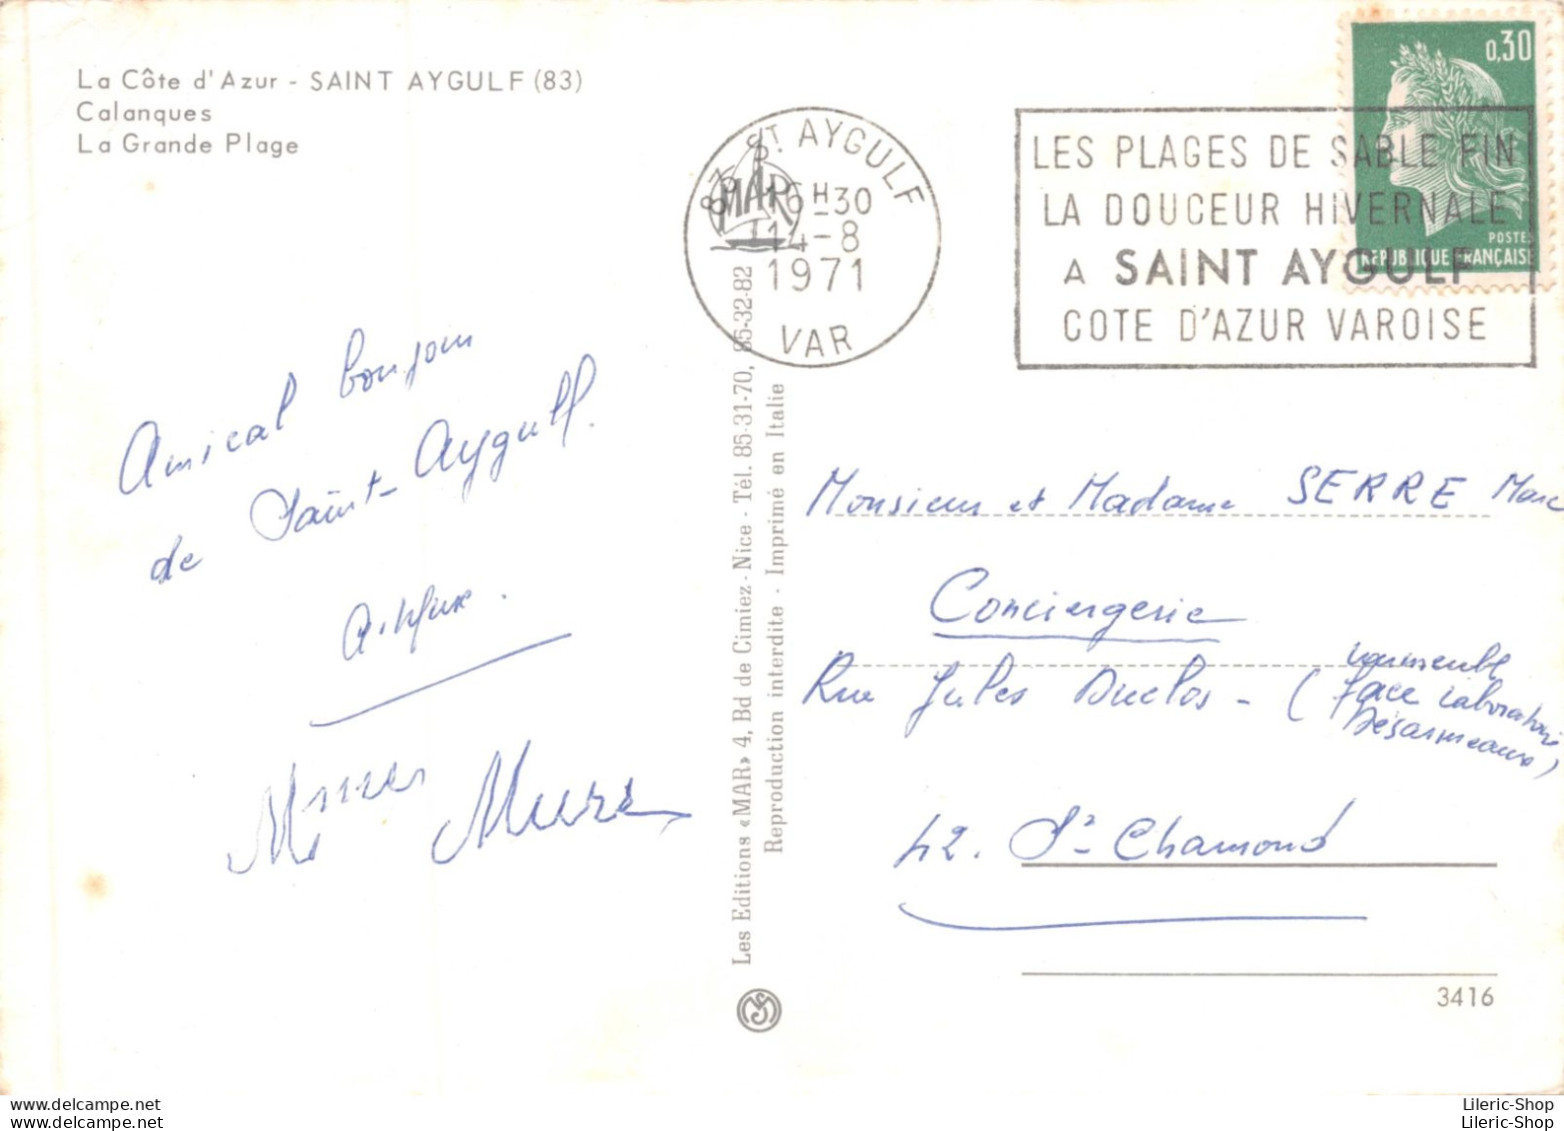 La Côte d'Azur - SAINT AYGULF (83)
Calanques
La Grande Plage
0,30
POSTES
REPUBLIQUE FRANÇAISE
83 ST AYGULF
16H30
14-8
1971
VAR
MAR
LES PLAGES DE SABLE FIN
LA DOUCEUR HIVERNALE
A SAINT AYGULF
COTE D'AZUR VAROISE
Amical bonjour
de Saint-Aygulf.
Les Editions «MAR» 4, Bd de Cimiez - Nice - Tél. 85-31-70, 85-32-82
Reproduction interdite - Imprimé en Italie
Monsieur et Madame SERRE Marc
Conciergerie
Rue Jules Duclos - (
face Laboratoire
Désarmeaux)
42. St Chamond
3416
delcampe.net
Lileric-Shop
Lileric-Shop